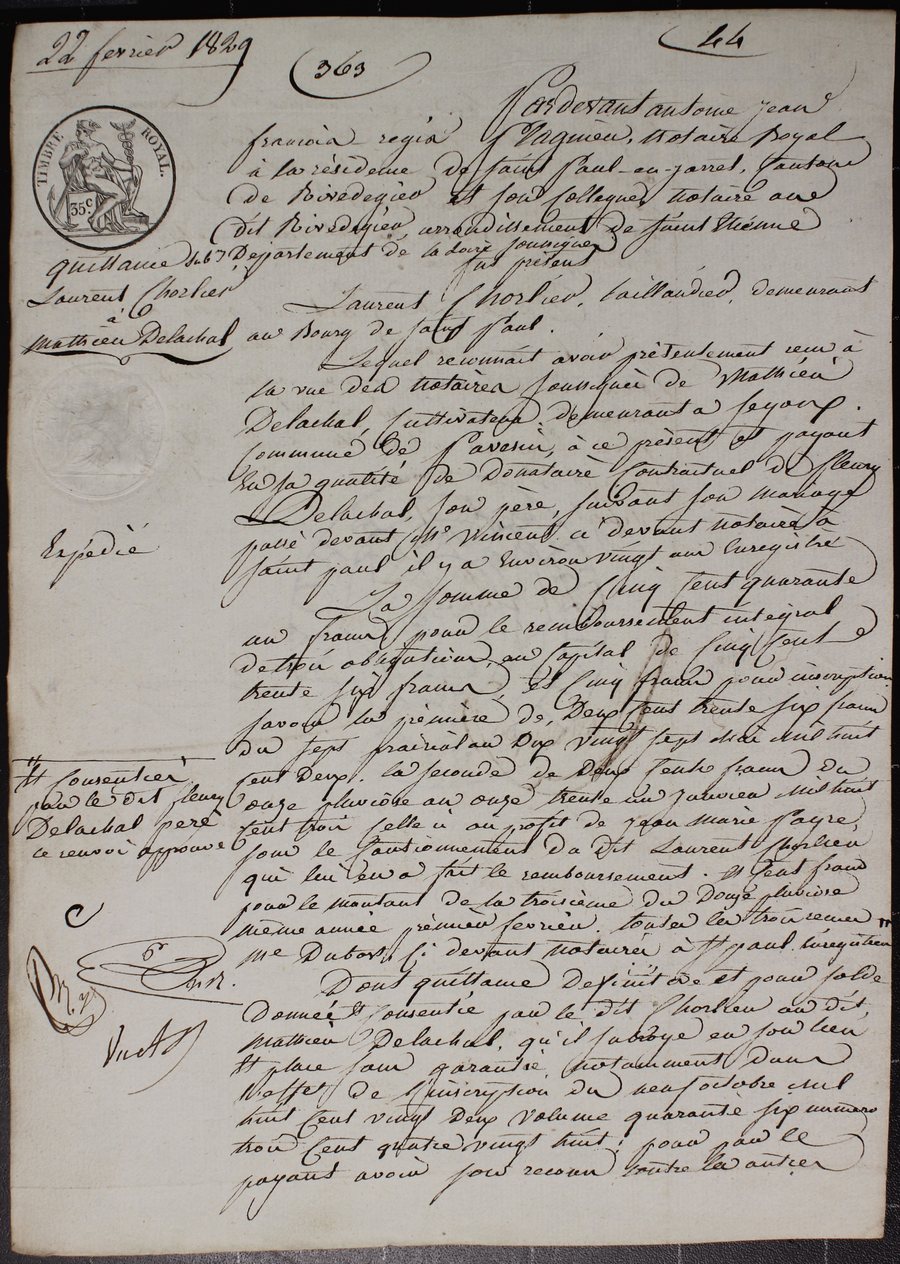 22 fevrier 1829
363
44
TIMBRE ROYAL.
35c.
Pardevant antoine jean
francois regis notaire Royal
à la résidence de saint Paul-en-jarret, Canton
de Rivedegier et son collegue notaire au
dit Rivedegier, arrondissement de saint Etienne
Département de la loire soussignés
fut présent
quittance
Laurent Chorlier
à
Mathieu Delachal
Laurent Chorlier, taillandier, demeurant
au Bourg de saint Paul.
Lequel reconnait avoir présentement recu à
la vue des notaires soussignés de Mathieu
Delachal, Cultivateur demeurant a
commune de Pavesin, à ce présent et payant
En sa qualité de Donataire Contractuel de fleury
Delachal, son père, suivant son mariage
passé devant Me Vincent, ci devant notaire à
saint paul il y a Environ vingt ans Enregistré
Expédié
La somme de Cinq Cent quarante
un francs pour le remboursement intégral
de trois obligations, en Capital de Cinq Cent
trente six francs, et Cinq francs pour inscription
savoir la première de, Deux Cent trente six francs
du sept prairial an Dix vingt sept Mai mil huit
Cent Deux. la seconde de Deux Cents francs du
onze pluviose an onze trente un janvier mil huit
Cent trois Celle ci au profit de jean Marie Payre,
sous le Cautionnement du dit Laurent Chorlier,
qui lui en a fait le remboursement. et Cent francs
pour le montant de la troisième du Douze pluviose
même année prémier fevrier. toutes les trois recues
Me Dubost, Ci devant notaire à St paul. Enregistrées
et Consenties
par le dit fleury
Delachal père
ce renvoi approuvé
Dont quittance Definitive et pour solde
Donnée et Consentie par le dit Chorlier au dit,
Mathieu Delachal, qu'il subroge en son lieu
et place sans garantie, notamment dans
l'effet de l'inscription du neuf octobre mil
huit Cent vingt Deux volume quarante six numero
trois Cent quatre vingt huit; pour par le
payant avoir son recours Contre les autres